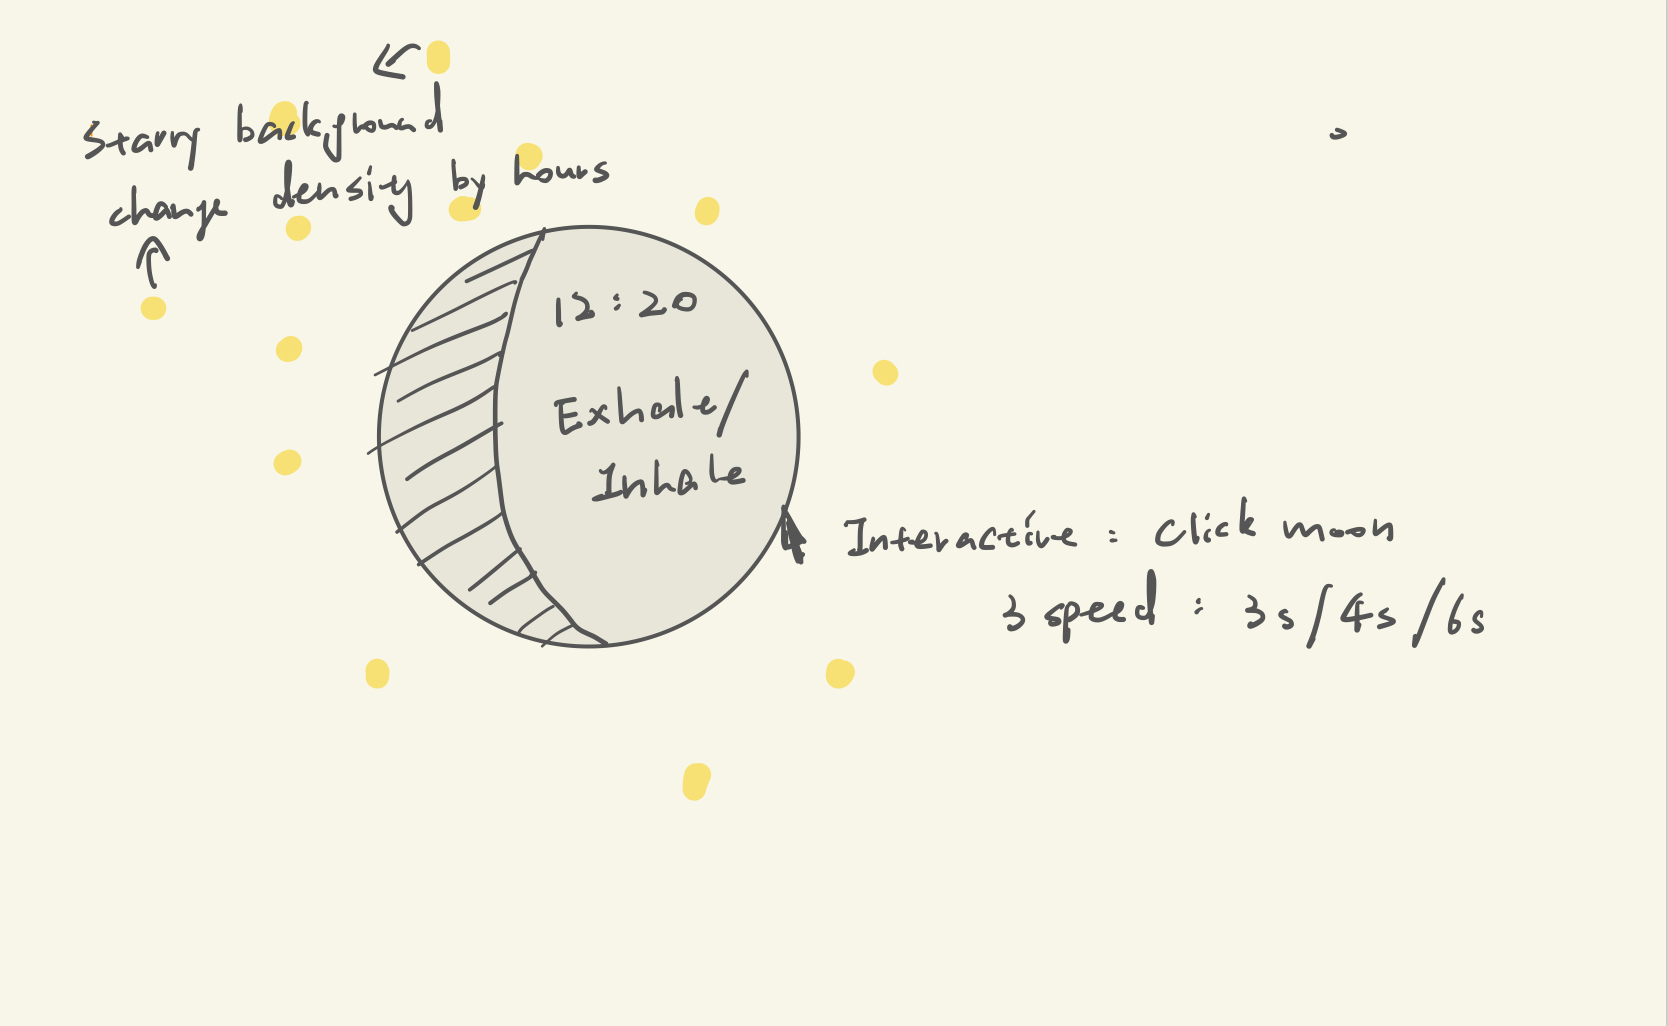 Starry background
change density by hours
12:20
Exhale/
Inhale
Interactive: Click moon
3 speed: 3s/4s/6s